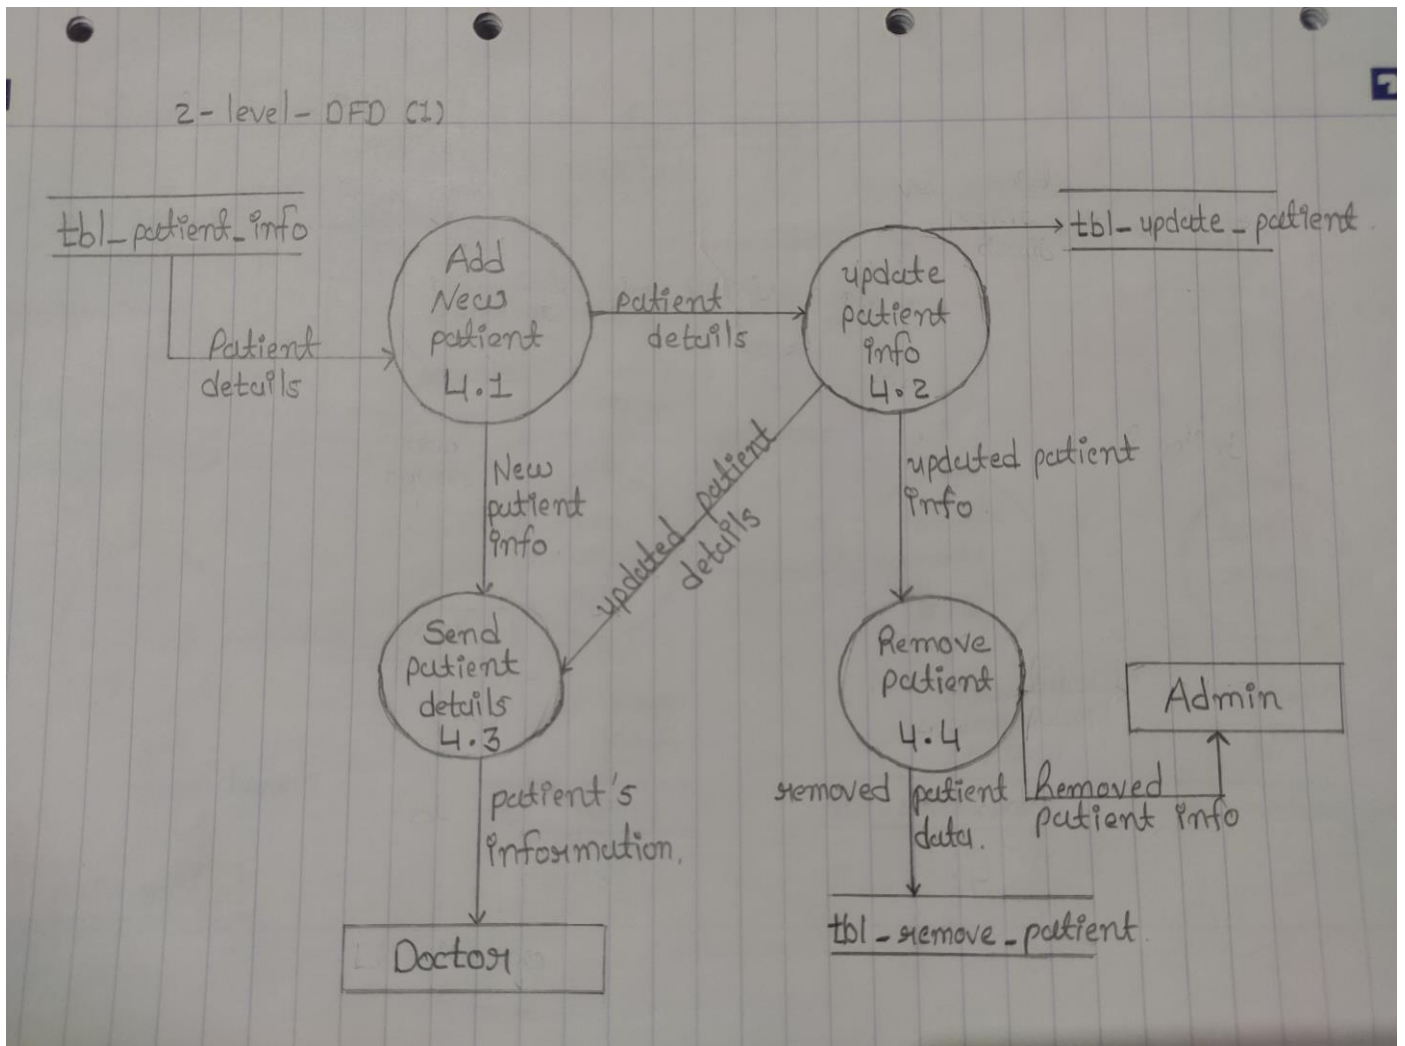 2-level-DFD (1)
tbl_patient_info
Patient
details
Add
New
patient
4.1
patient
details
update
patient
info
4.2
tbl_update_patient
New
patient
info
updated patient
details
updated patient
info
Send
patient
details
4.3
Remove
patient
4.4
Admin
patient's
information.
removed patient
data.
Removed
patient info
Doctor
tbl_remove_patient